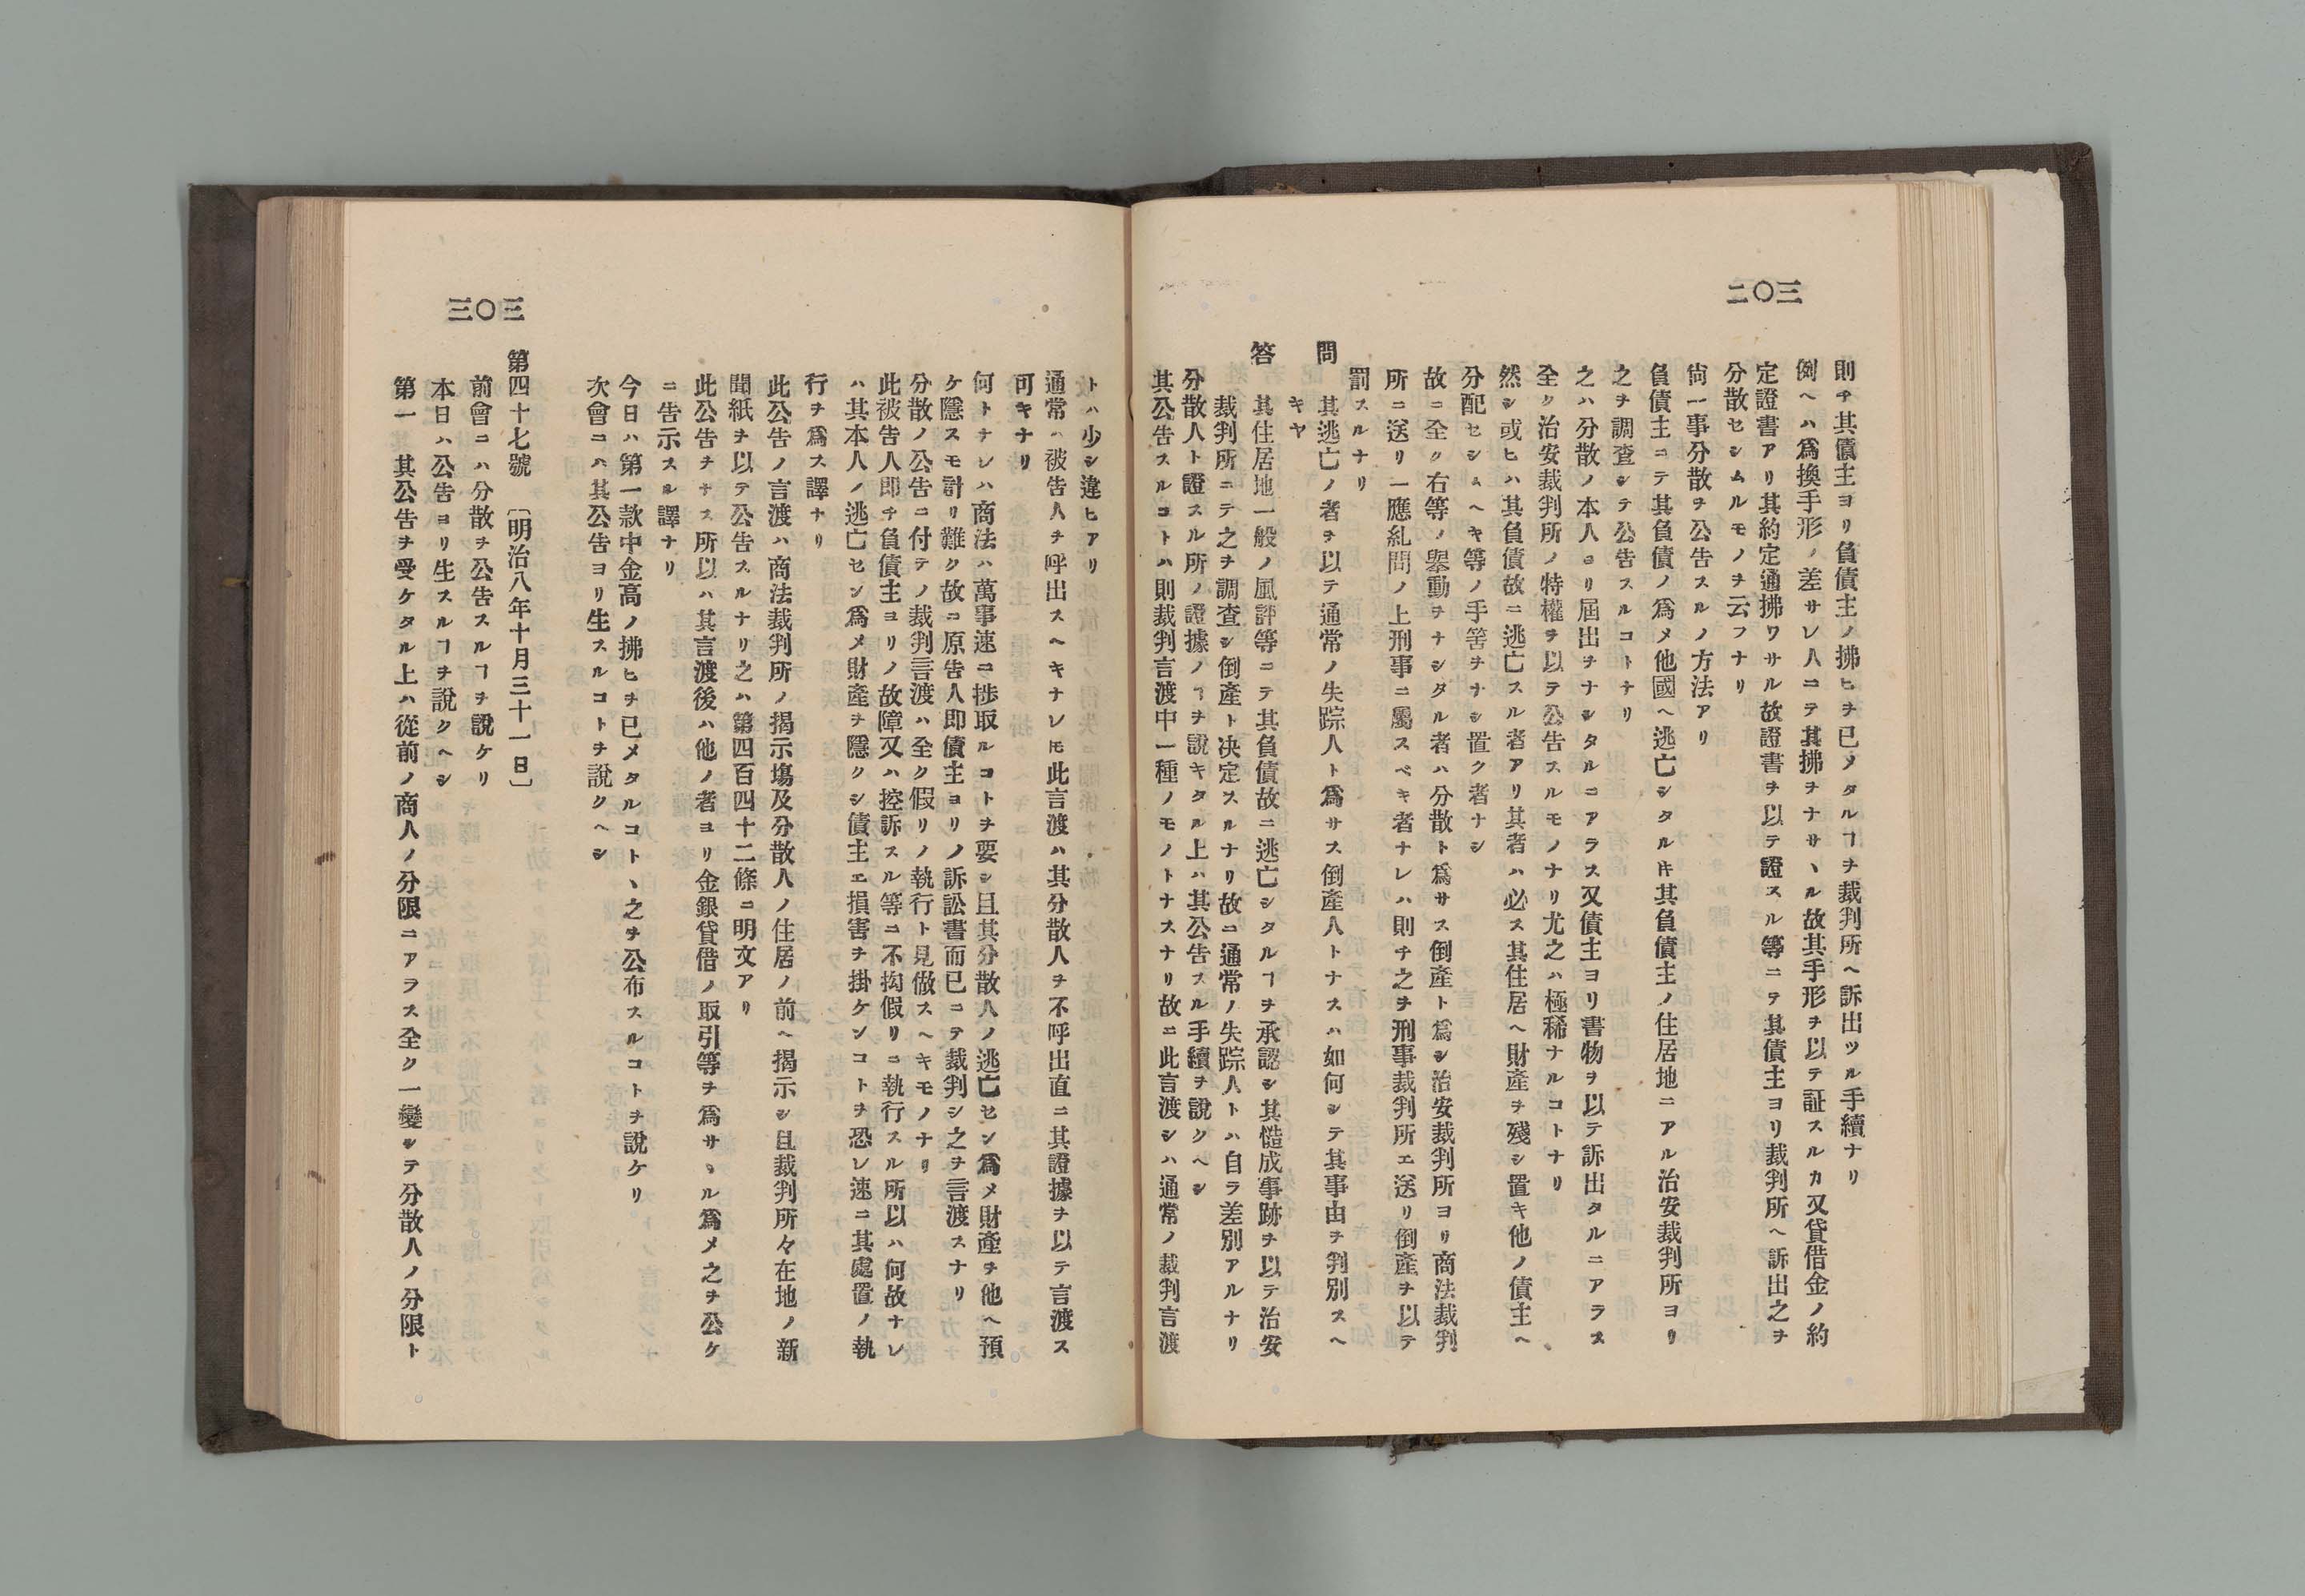 三〇二
則チ其債主ヨリ負債主ノ拂ヒヲ已メタルヿヲ裁判所ヘ訴出ツル手續ナリ
例ヘハ爲換手形ノ差サレ人ニテ其拂ヲナサヽル故其手形ヲ以テ証スルカ又貸借金ノ約
定證書アリ其約定通拂ワサル故證書ヲ以テ證スル等ニテ其債主ヨリ裁判所ヘ訴出之ヲ
分散セシムルモノヲ云フナリ
尙一事分散ヲ公告スルノ方法アリ
負債主ニテ其負債ノ爲メ他國ヘ逃亡シタル片其負債主ノ住居地ニアル治安裁判所ヨリ
之ヲ調査シテ公告スルコトナリ
之ハ分散ノ本人ヨリ屆出ヲナシタルニアラス又債主ヨリ書物ヲ以テ訴出タルニアラス
全ク治安裁判所ノ特權ヲ以テ公告スルモノナリ尤之ハ極稀ナルコトナリ
然シ或ヒハ其負債故ニ逃亡スル者アリ其者ハ必ス其住居ヘ財產ヲ殘シ置キ他ノ債主ヘ
分配セシムヘキ等ノ手筈ヲナシ置ク者ナシ
故ニ全ク右等ノ擧動ヲナシタル者ハ分散ト爲サス倒產ト爲シ治安裁判所ヨリ商法裁判
所ニ送リ一應糺問ノ上刑事ニ屬スベキ者ナレハ則チ之ヲ刑事裁判所エ送リ倒產ヲ以テ
罰スルナリ
問　其逃亡ノ者ヲ以テ通常ノ失踪人ト爲サス倒產人トナスハ如何シテ其事由ヲ判別スヘ
キヤ
答　其住居地一般ノ風評等ニテ其負債故ニ逃亡シタルヿヲ承認シ其慥成事跡ヲ以テ治安
裁判所ニテ之ヲ調査シ倒產ト決定スルナリ故ニ通常ノ失踪人トハ自ラ差別アルナリ
分散人ト證スル所ノ證據ノヿヲ說キタル上ハ其公告スル手續ヲ說クヘシ
其公告スルコトハ則裁判言渡中一種ノモノトナスナリ故ニ此言渡シハ通常ノ裁判言渡
トハ少シ違ヒアリ
通常ハ被告人ヲ呼出スヘキナレ𪜈此言渡ハ其分散人ヲ不呼出直ニ其證據ヲ以テ言渡ス
可キナリ
何トナレハ商法ハ萬事速ニ捗取ルコトヲ要シ且其分散人ノ逃亡セン爲メ財產ヲ他ヘ預
ケ隱スモ計リ難ク故ニ原告人即債主ヨリノ訴訟書而已ニテ裁判シ之ヲ言渡スナリ
分散ノ公告ニ付テノ裁判言渡ハ全ク假リノ執行ト見做スヘキモノナリ
此被告人即チ負債主ヨリノ故障又ハ控訴スル等ニ不拘假リニ執行スル所以ハ何故ナレ
ハ其本人ノ逃亡セン爲メ財產ヲ隱クシ債主エ損害ヲ掛ケンコトヲ恐レ速ニ其處置ノ執
行ヲ爲ス譯ナリ
此公告ノ言渡ハ商法裁判所ノ揭示塲及分散人ノ住居ノ前ヘ揭示シ且裁判所々在地ノ新
聞紙ヲ以テ公告スルナリ之ハ第四百四十二條ニ明文アリ
此公告ヲナス所以ハ其言渡後ハ他ノ者ヨリ金銀貸借ノ取引等ヲ爲サヽル爲メ之ヲ公ケ
ニ告示スル譯ナリ
今日ハ第一款中金高ノ拂ヒヲ已メタルコト、之ヲ公布スルコトヲ說ケリ
次會ニハ其公告ヨリ生スルコトヲ說クヘシ
第四十七號　〔明治八年十月三十一日〕
前會ニハ分散ヲ公告スルヿヲ說ケリ
本日ハ公告ヨリ生スルヿヲ說クヘシ
第一　其公告ヲ受ケタル上ハ從前ノ商人ノ分限ニアラス全ク一變シテ分散人ノ分限ト
三〇三